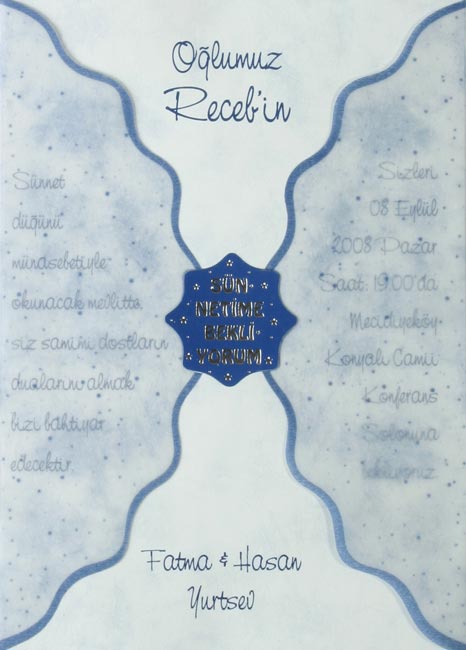 Oğlumuz
Receb'in
Sünnet
düğünü
münasebetiyle
okunacak mevlitte
siz samimi dostların
dualarını almak
bizi bahtiyar
edecektir.
SÜN-
NETİME
BEKLİ-
YORUM
Sizleri
08 Eylül
2008 Pazar
Saat: 19:00'da
Mecidiyeköy
Konyalı Camii
Konferans
Salonuna
bekliyoruz
Fatma & Hasan
Yurtsev